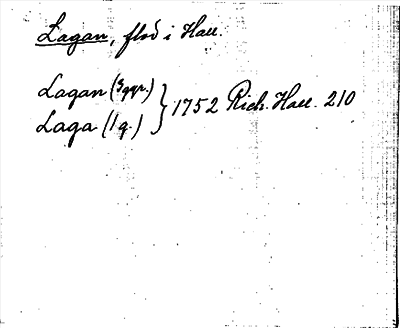 Lagan, flod i Hall.
Lagan (3 ggr.)
Laga (1 g.) } 1752 Rich. Hall. 210